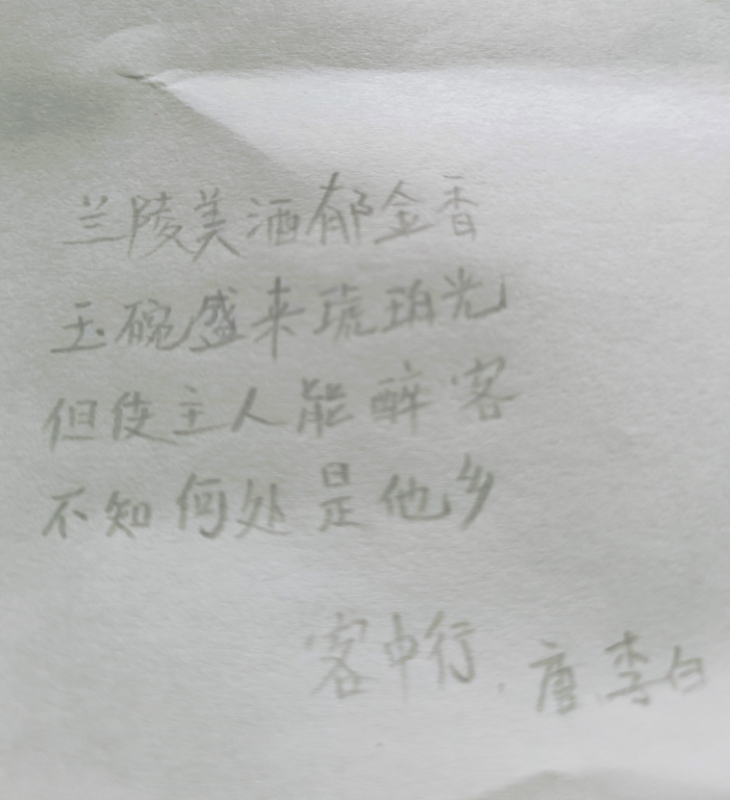 兰陵美酒郁金香
玉碗盛来琥珀光
但使主人能醉客
不知何处是他乡
客中行. 唐 李白